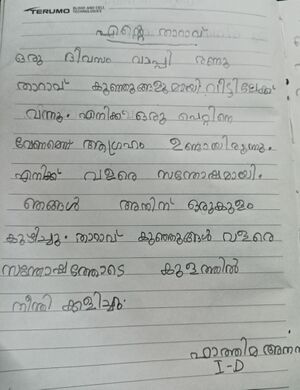 TERUMO BLOOD AND CELL TECHNOLOGIES
എന്റെ താറാവ്
ഒരു ദിവസം വാപ്പി രണ്ടു
താറാവ് കുഞ്ഞുങ്ങളുമായി വീട്ടിലേക്ക്
വന്നു. എനിക്ക് ഒരു പെറ്റിനെ
വേണമെന്ന് ആഗ്രഹം ഉണ്ടായിരുന്നു.
എനിക്ക് വളരെ സന്തോഷമായി.
ഞങ്ങൾ അതിന് ഒരുകുളം
കുഴിച്ചു. താറാവ് കുഞ്ഞുങ്ങൾ വളരെ
സന്തോഷത്തോടെ കുളത്തിൽ
നീന്തി കളിച്ചു.
ഫാത്തിമ
I-D